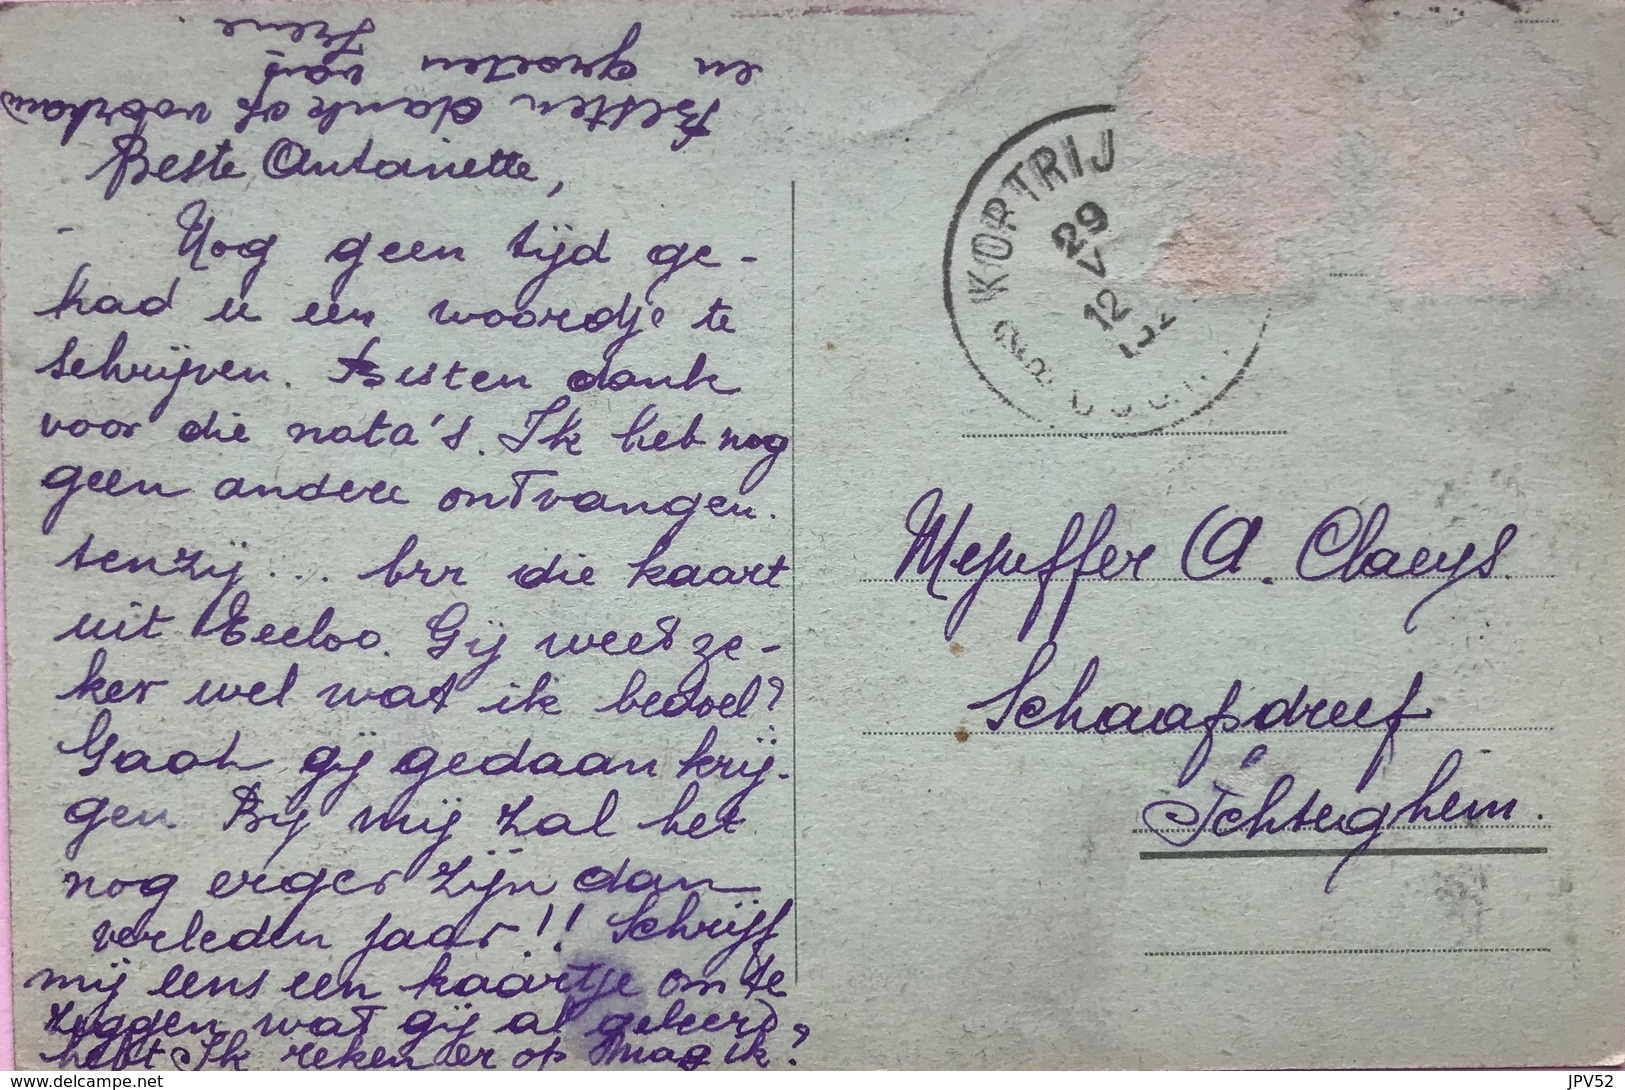 Beste Antoinette,
Nog geen tijd ge-
had u een woordje te
schrijven. Besten dank
voor die nota's. Ik heb nog
geen andere ontvangen.
tenzij... brr die kaart
uit Eecloo. Gij weet ze-
ker wel wat ik bedoel?
Gaat gij gedaan krij-
gen. Bij mij zal het
nog erger zijn dan
verleden jaar!! Schrijf
mij eens een kaartje om te
zeggen wat gij al geleerd
hebt. Ik reken er op mag ik?
Besten dank op voorhand
en groeten van
Irene.
KORTRIJ
29
V
12
Mejuffer A. Claeys.
Schaapsdreef
Ichteghem.
https://www.delcampe.net
JPV52